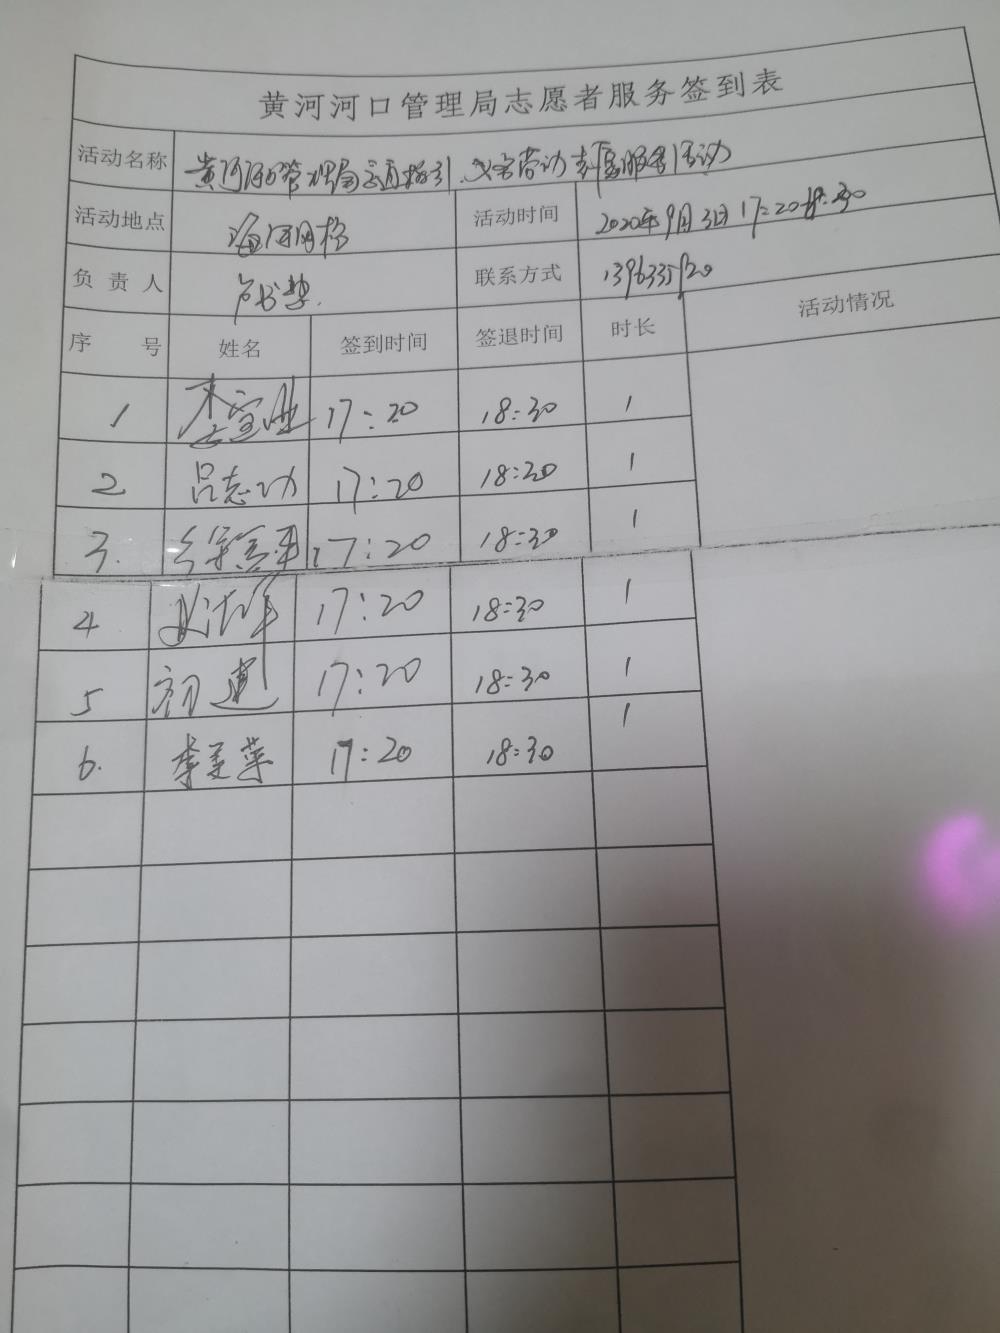 黄河河口管理局志愿者服务签到表
活动名称 黄河河口管理局交通指引、义务劳动志愿服务活动
活动地点 活动时间 2020年9月3日 17:20-18:30
负责人 联系方式
序号 姓名 签到时间 签退时间 时长 活动情况
1 17:20 18:30 1
2 吕志功 17:20 18:30 1
3. 17:20 18:30 1
4 17:20 18:30 1
5 初建 17:20 18:30 1
6. 李美萍 17:20 18:30 1